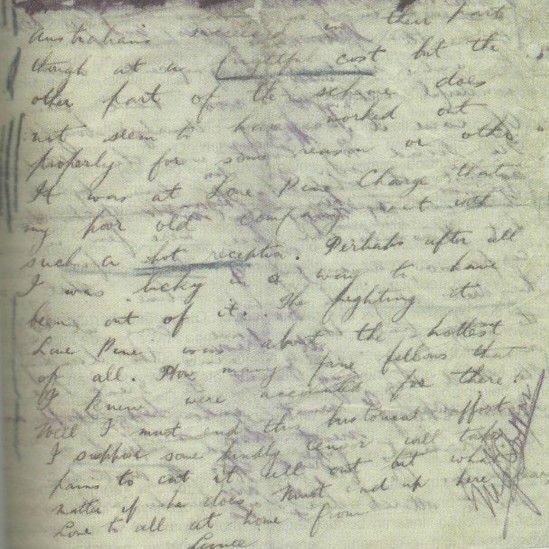 Australians succeeded in their part
though at a frightful cost but the
other part of the scheme does
not seem to have worked out
properly for some reason or other
It was at Lone Pine Charge that
my poor old company met with
such a hot reception. Perhaps after all
I was lucky in a way to have
been out of it. The fighting
Lone Pine was about the hottest
of all. How many fine fellows that
I knew were accounted for there
Well I must end this effort
I suppose some kindly censor will take
pains to cut it all out but what
matter if he does. Must end up here
Love to all at home from